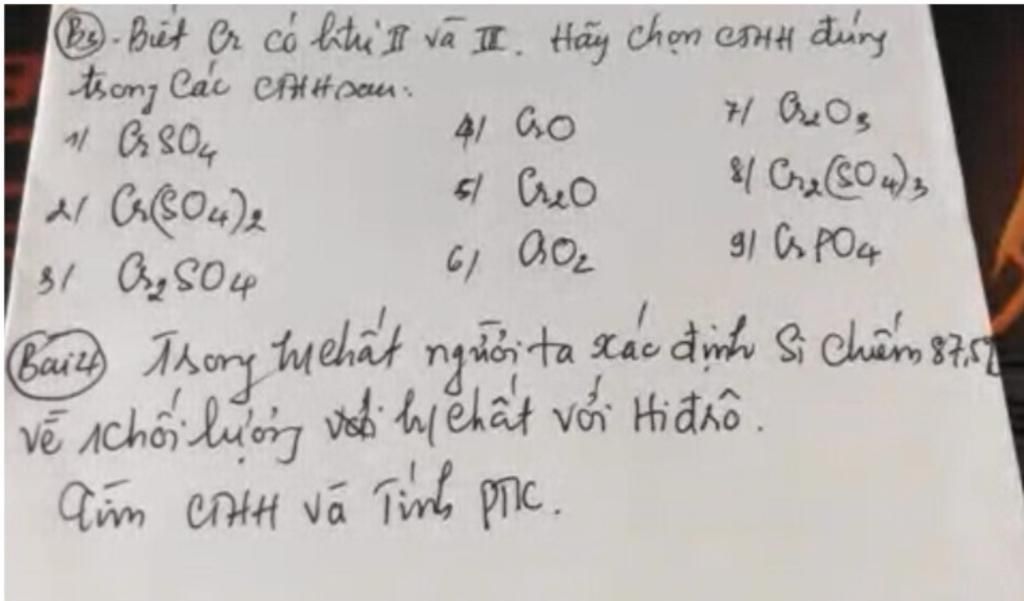 B3. Biết Cr có htrị II và III. Hãy chọn CTHH đúng
trong các CTHH sau:
1/ CrSO4 4/ CrO 7/ Cr2O3
2/ Cr(SO4)2 5/ Cr2O 8/ Cr2(SO4)3
3/ Cr2SO4 6/ CrO2 9/ CrPO4
Bài 4 Trong h/chất người ta xác định Si chiếm 87,5%
về khối lượng h/chất với Hiđrô.
Tìm CTHH và Tính PTK.